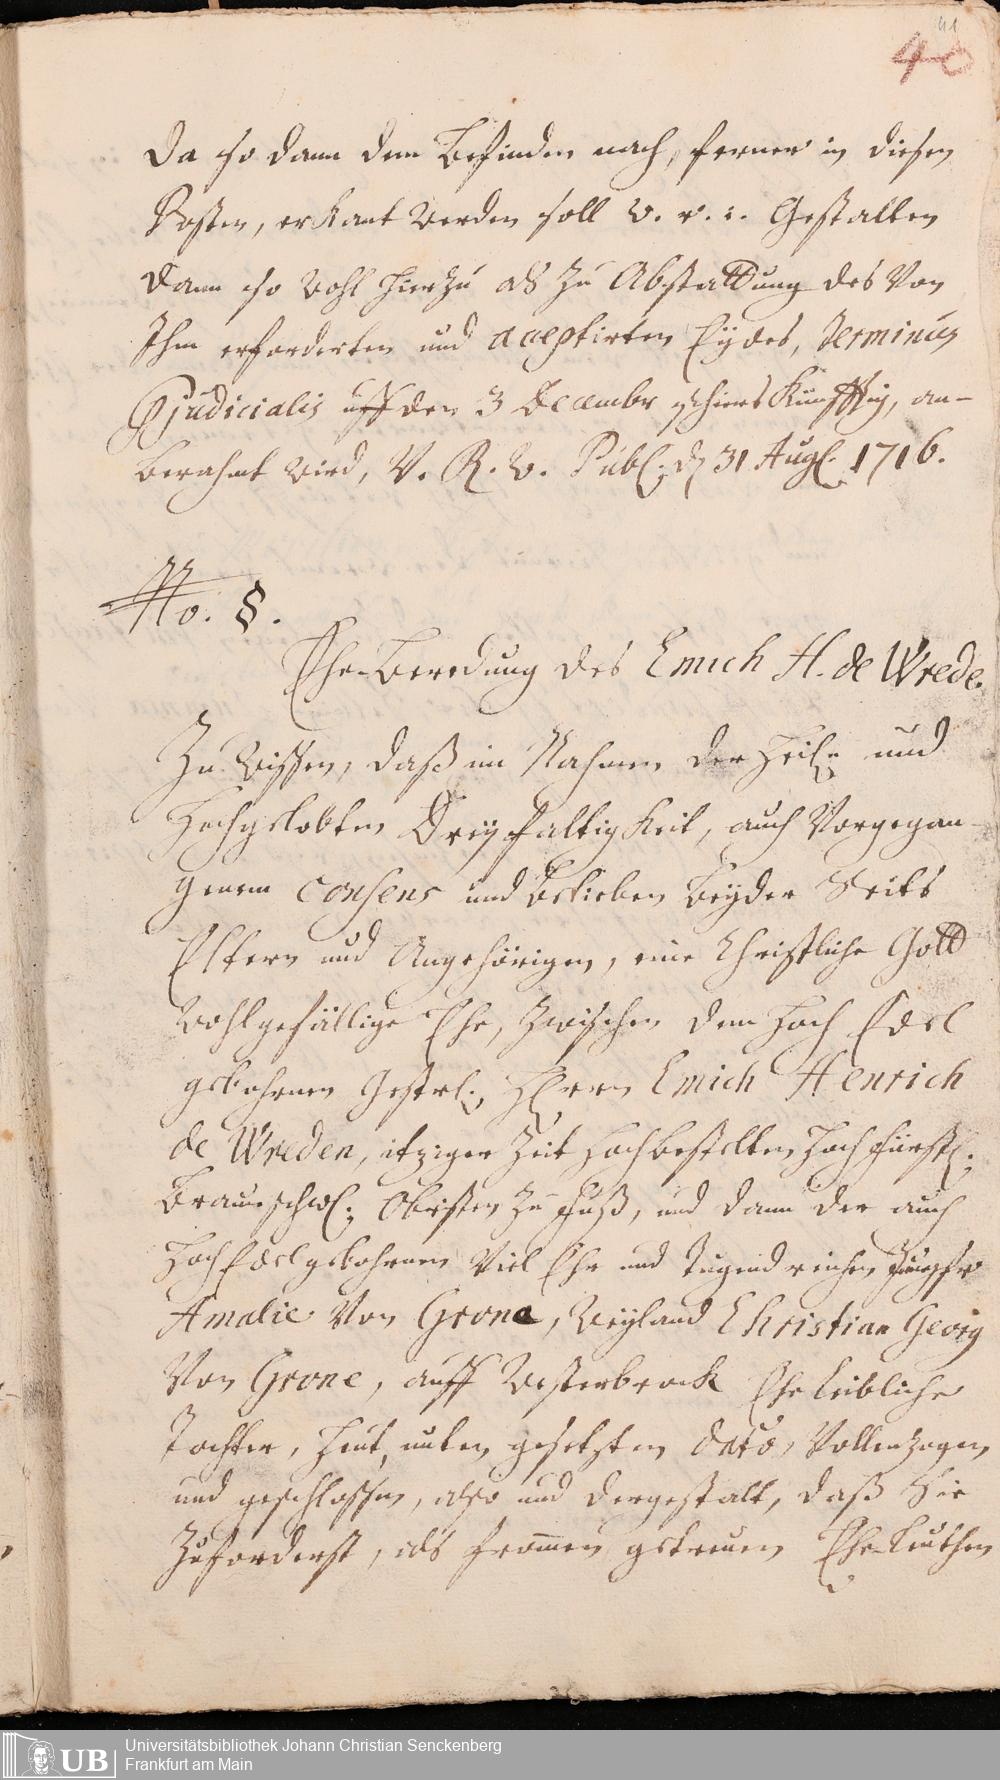 41
40
Da so dann dem Befinden nach, ferner in diesen
Posten, erkant werden soll V. R. W. Gestalten
dann so wohl hierzu als zu Abstattung des von
Ihm erforderten und acceptirten Eydes, Terminus
Pjudicialis uff den 3 Decembr schiers Künfftig, an-
berahmt wird, V. R. W. Publ. d 31 Aug. 1716.
No. §.
Ehe-Beredung des Emich H. de Wrede.
Zu Wissen, daß im Nahmen der Heil. und
Hochgelobten Dreyfaltigkeit, auch Vorgegan-
genem Consens und Belieben beyder Seits
Eltern und Angehörigen, eine Christliche Gott
wohlgefällige Ehe, zwischen dem Hoch Edel
gebohrnen Gestrl. Herrn Emich Henrich
de Wreden, itziger Zeit Hochbestelten Hochfürstl.
Braunschw. Obristen zu Fuß, und dann der auch
Hoch Edelgebohrnen Viel Ehr und Tugendreichen Jungfr
Amalie von Grone, Weyland Christian Georg
von Grone, auff Westerbrack Eheleibliche
Tochter, Heut, unten gesetzten dato, Vollenzogen
und geschlossen, also und dergestalt, daß Sie
Zuforderst, als fromen getreuen Ehe-Leuthen
UB
Universitätsbibliothek Johann Christian Senckenberg
Frankfurt am Main